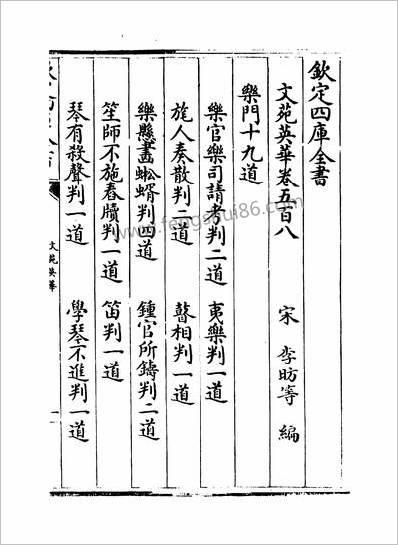 欽定四庫全書
文苑英華卷五百八 宋 李昉等 編
樂門十九道
樂官樂司請考判二道 夷樂判一道
旄人奏散判二道 瞽相判一道
樂懸畫蚣蝑判四道 鍾官所鑄判二道
笙師不施舂牘判一道 笛判一道
琴有殺聲判一道 學琴不進判一道
文苑英華
一
www.fengshui86.com